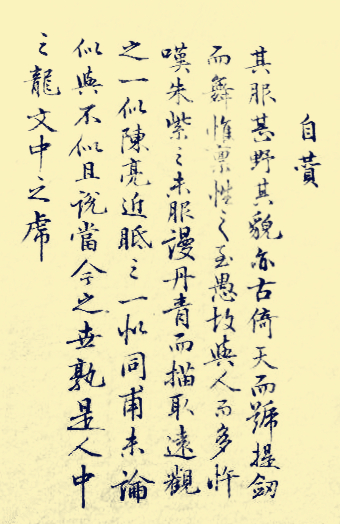 自贊
其服甚野其貌亦古倚天而號提釼
而舞惟稟性之至愚故與人而多忤
嘆朱紫之未服謾丹青而描取遠觀
之一似陳亮近眡之一似同甫未論
似與不似且説當今之世孰是人中
之龍文中之虎